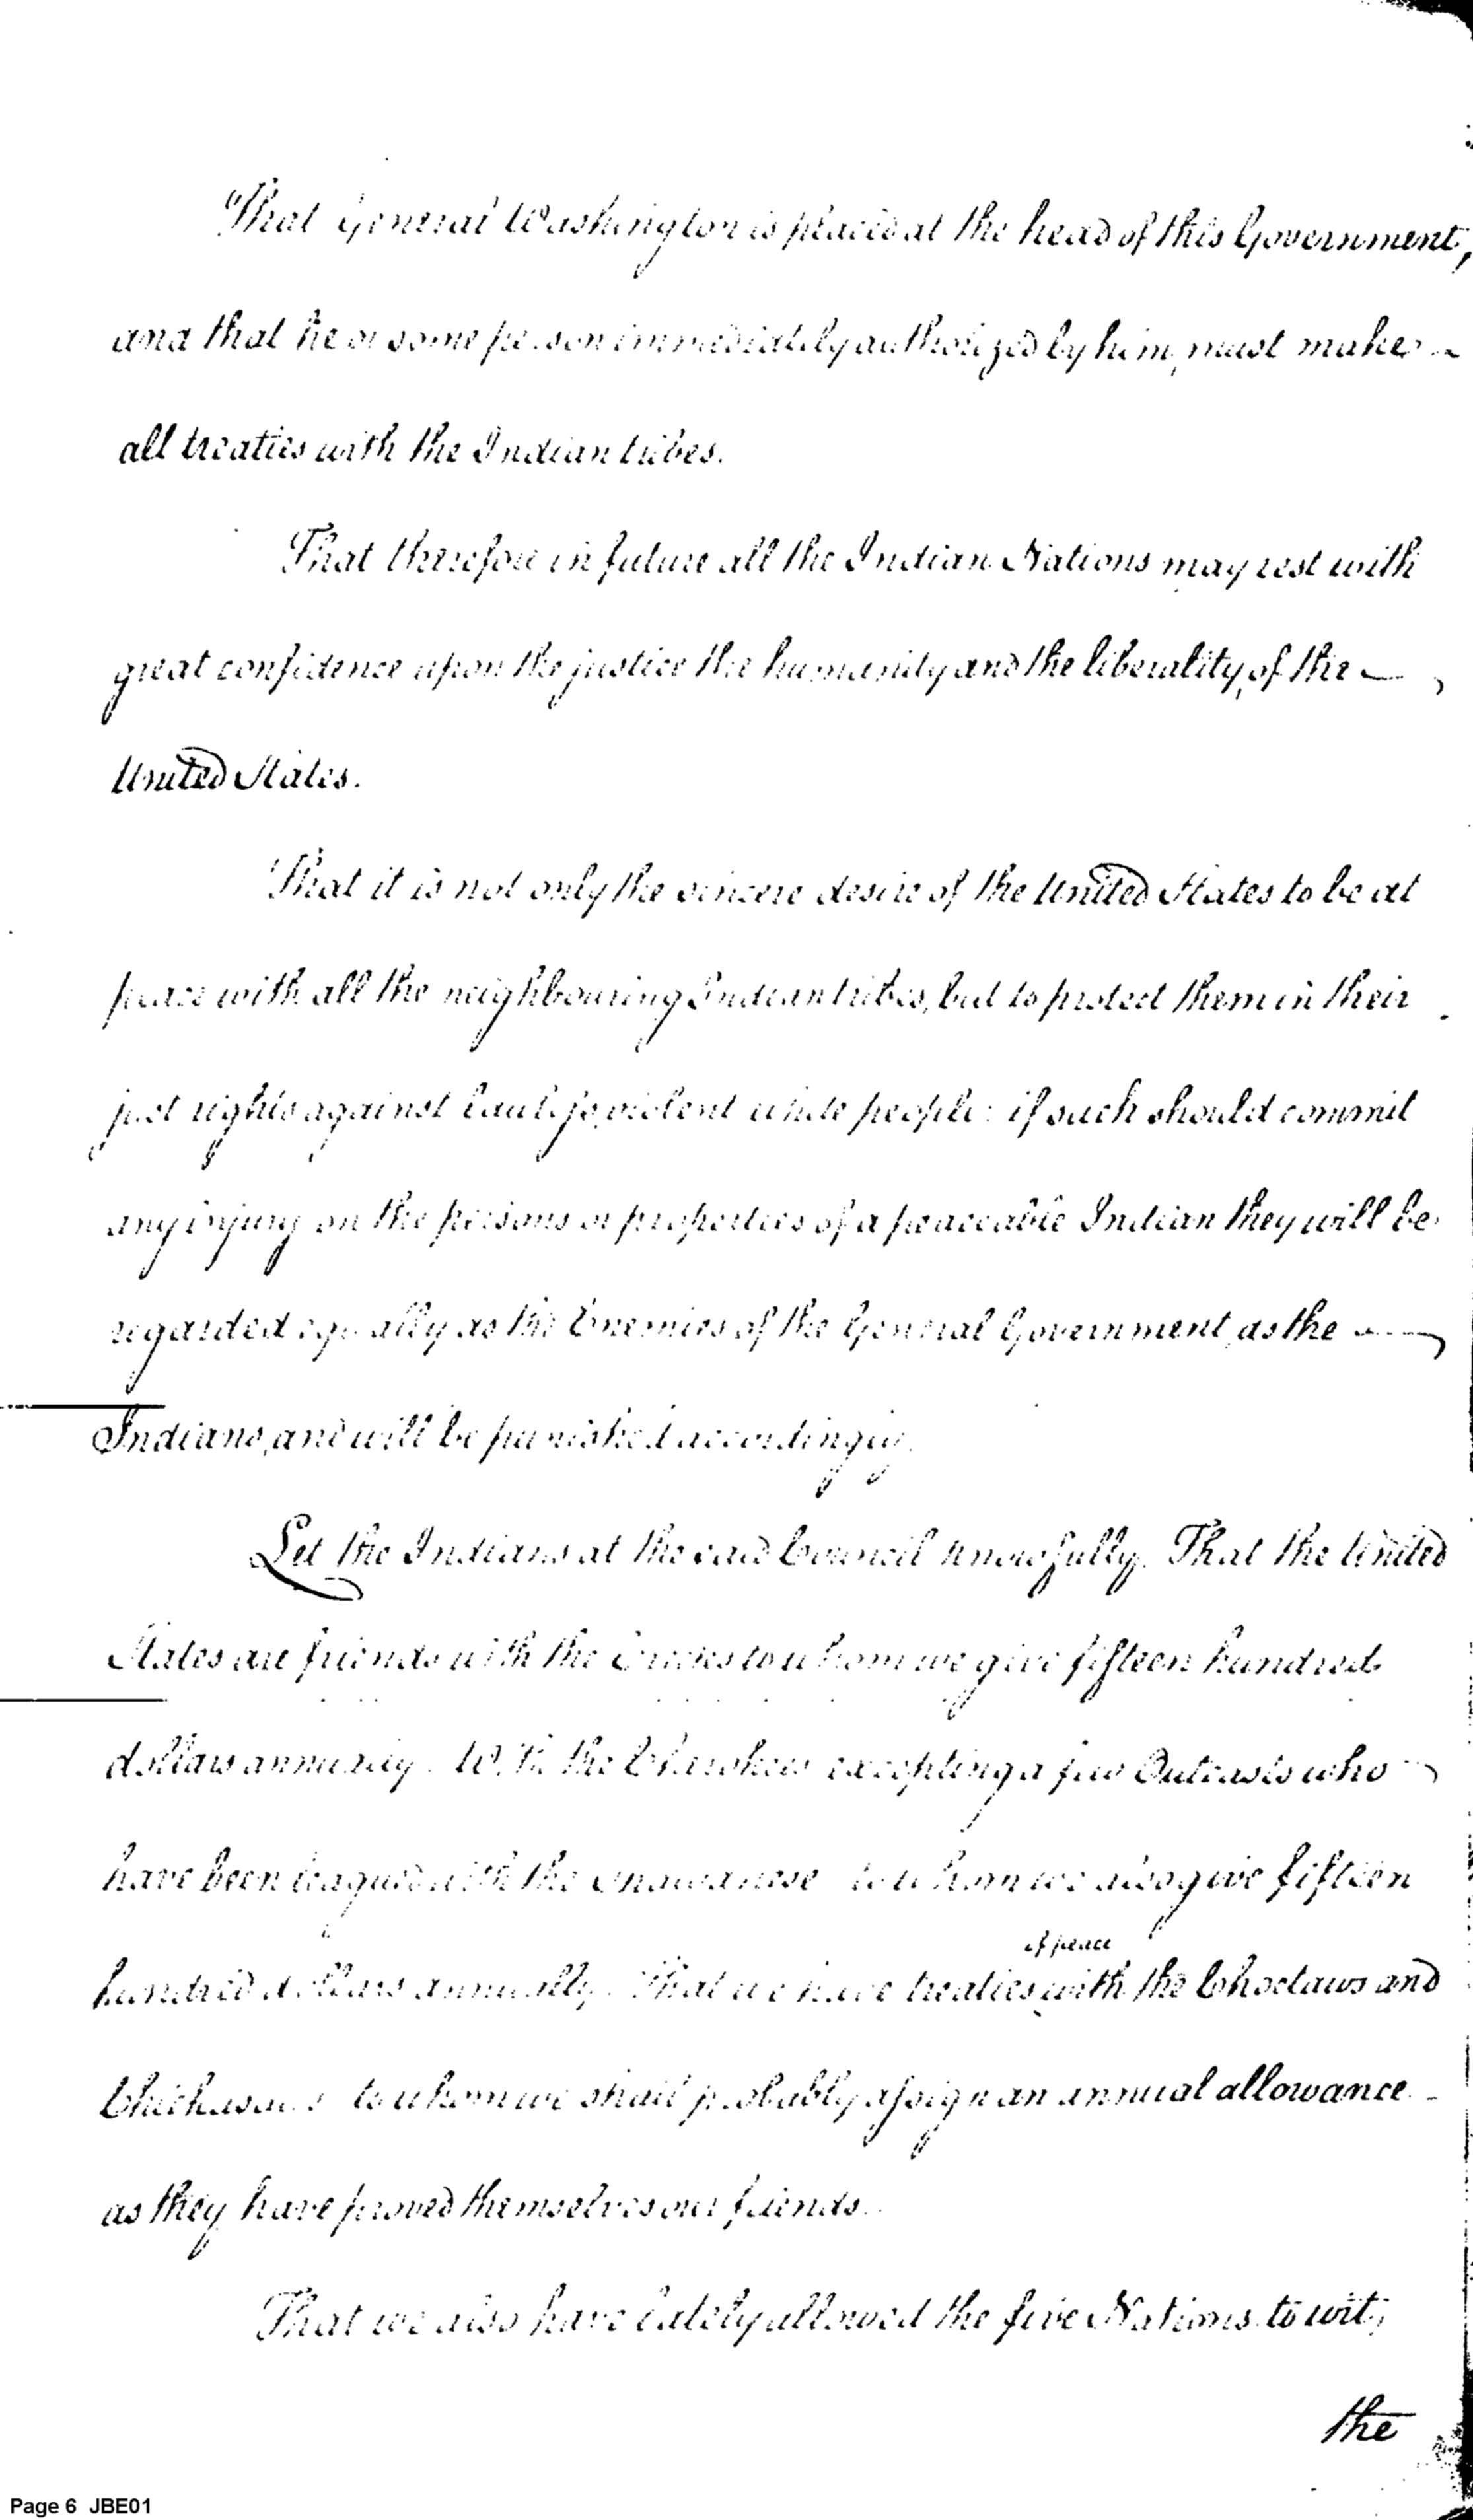 That General Washington is placed at the head of this Government,
and that he or some person immediately authorized by him, must make
all treaties with the Indian tribes.
That therefore in future all the Indian Nations may rest with
great confidence upon the justice the humanity and the liberality, of the
United States.
That it is not only the sincere desire of the United States to be at
peace with all the neighbouring Indian tribes, but to protect them in their
just rights against violent white people: if such should commit
any injury on the persons or properties of a peaceable Indian they will be
regarded equally as the Enemies of the General Government, as the
Indians, and will be punished accordingly.
Let the Indians at the said Council know fully. That the United
States are friends with the Creeks to whom we give fifteen hundred
dollars annually. With the Cherokees excepting a few Outcasts who
have been leagued with the Shawanese to whom we also give fifteen
of peace
hundred dollars annually. That we have treaties with the Choctaws and
Chickasaws to whom we shall probably assign an annual allowance
as they have proved themselves our friends.
That we also have lately allowed the five Nations. to wit;
the
Page 6 JBE01